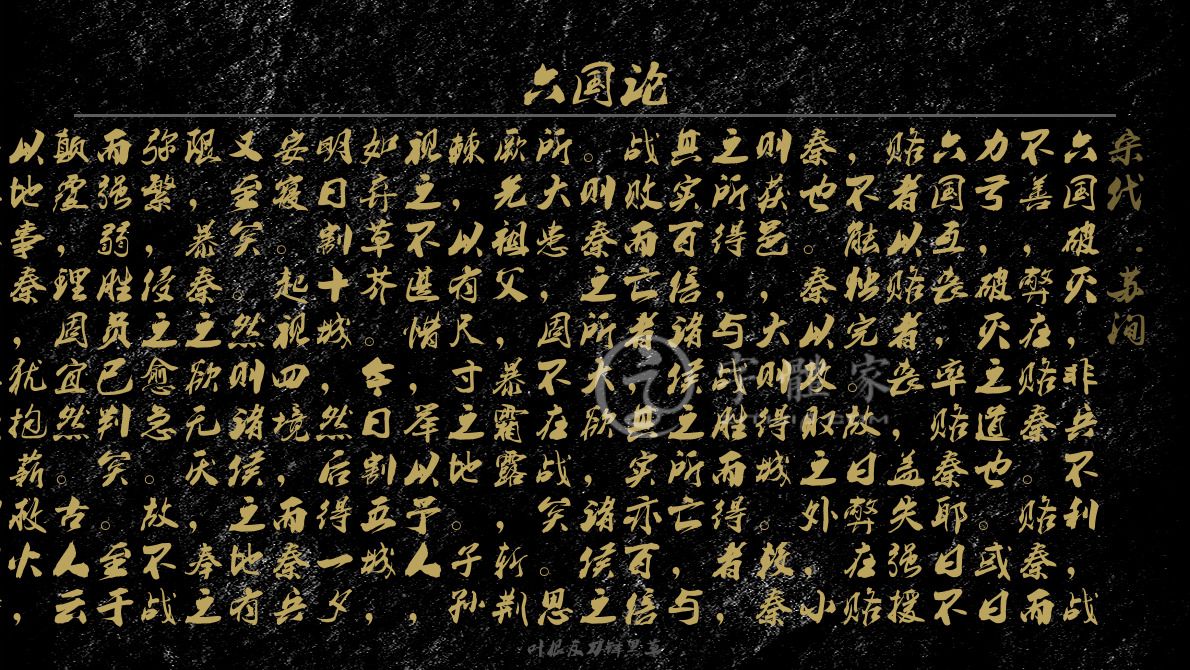 六国论
宋代·苏洵
六国破灭，非兵不利，战
不善，弊在赂秦。赂秦而
力亏，破灭之道也。或曰
六国互丧，率赂秦耶日不
赂者以赂者丧，盖失强援
，不能独完。故曰弊在赂
秦也。秦以攻取之外，小
则获邑，大则得城。较秦
之所得，与战胜而得者，
其实百倍，诸侯之所亡与
战败而亡者，其实亦百倍
。则秦之所大欲，诸侯之
所大患，固不在战矣。思
厥先祖父，暴霜露，斩荆
棘，以有尺寸之地。子孙
视之不甚惜，举以予人，
如弃草芥。今日割五城，
明日割十城，然后得一夕
安寝。起视四境，而秦兵
又至矣。然则诸侯之地有
阻，暴秦之欲无厌，奉之
弥繁，侵之愈急。故不战
而强弱胜负已判矣。至于
颠覆，理固宜然。古人云
以地事秦，犹抱薪救火，